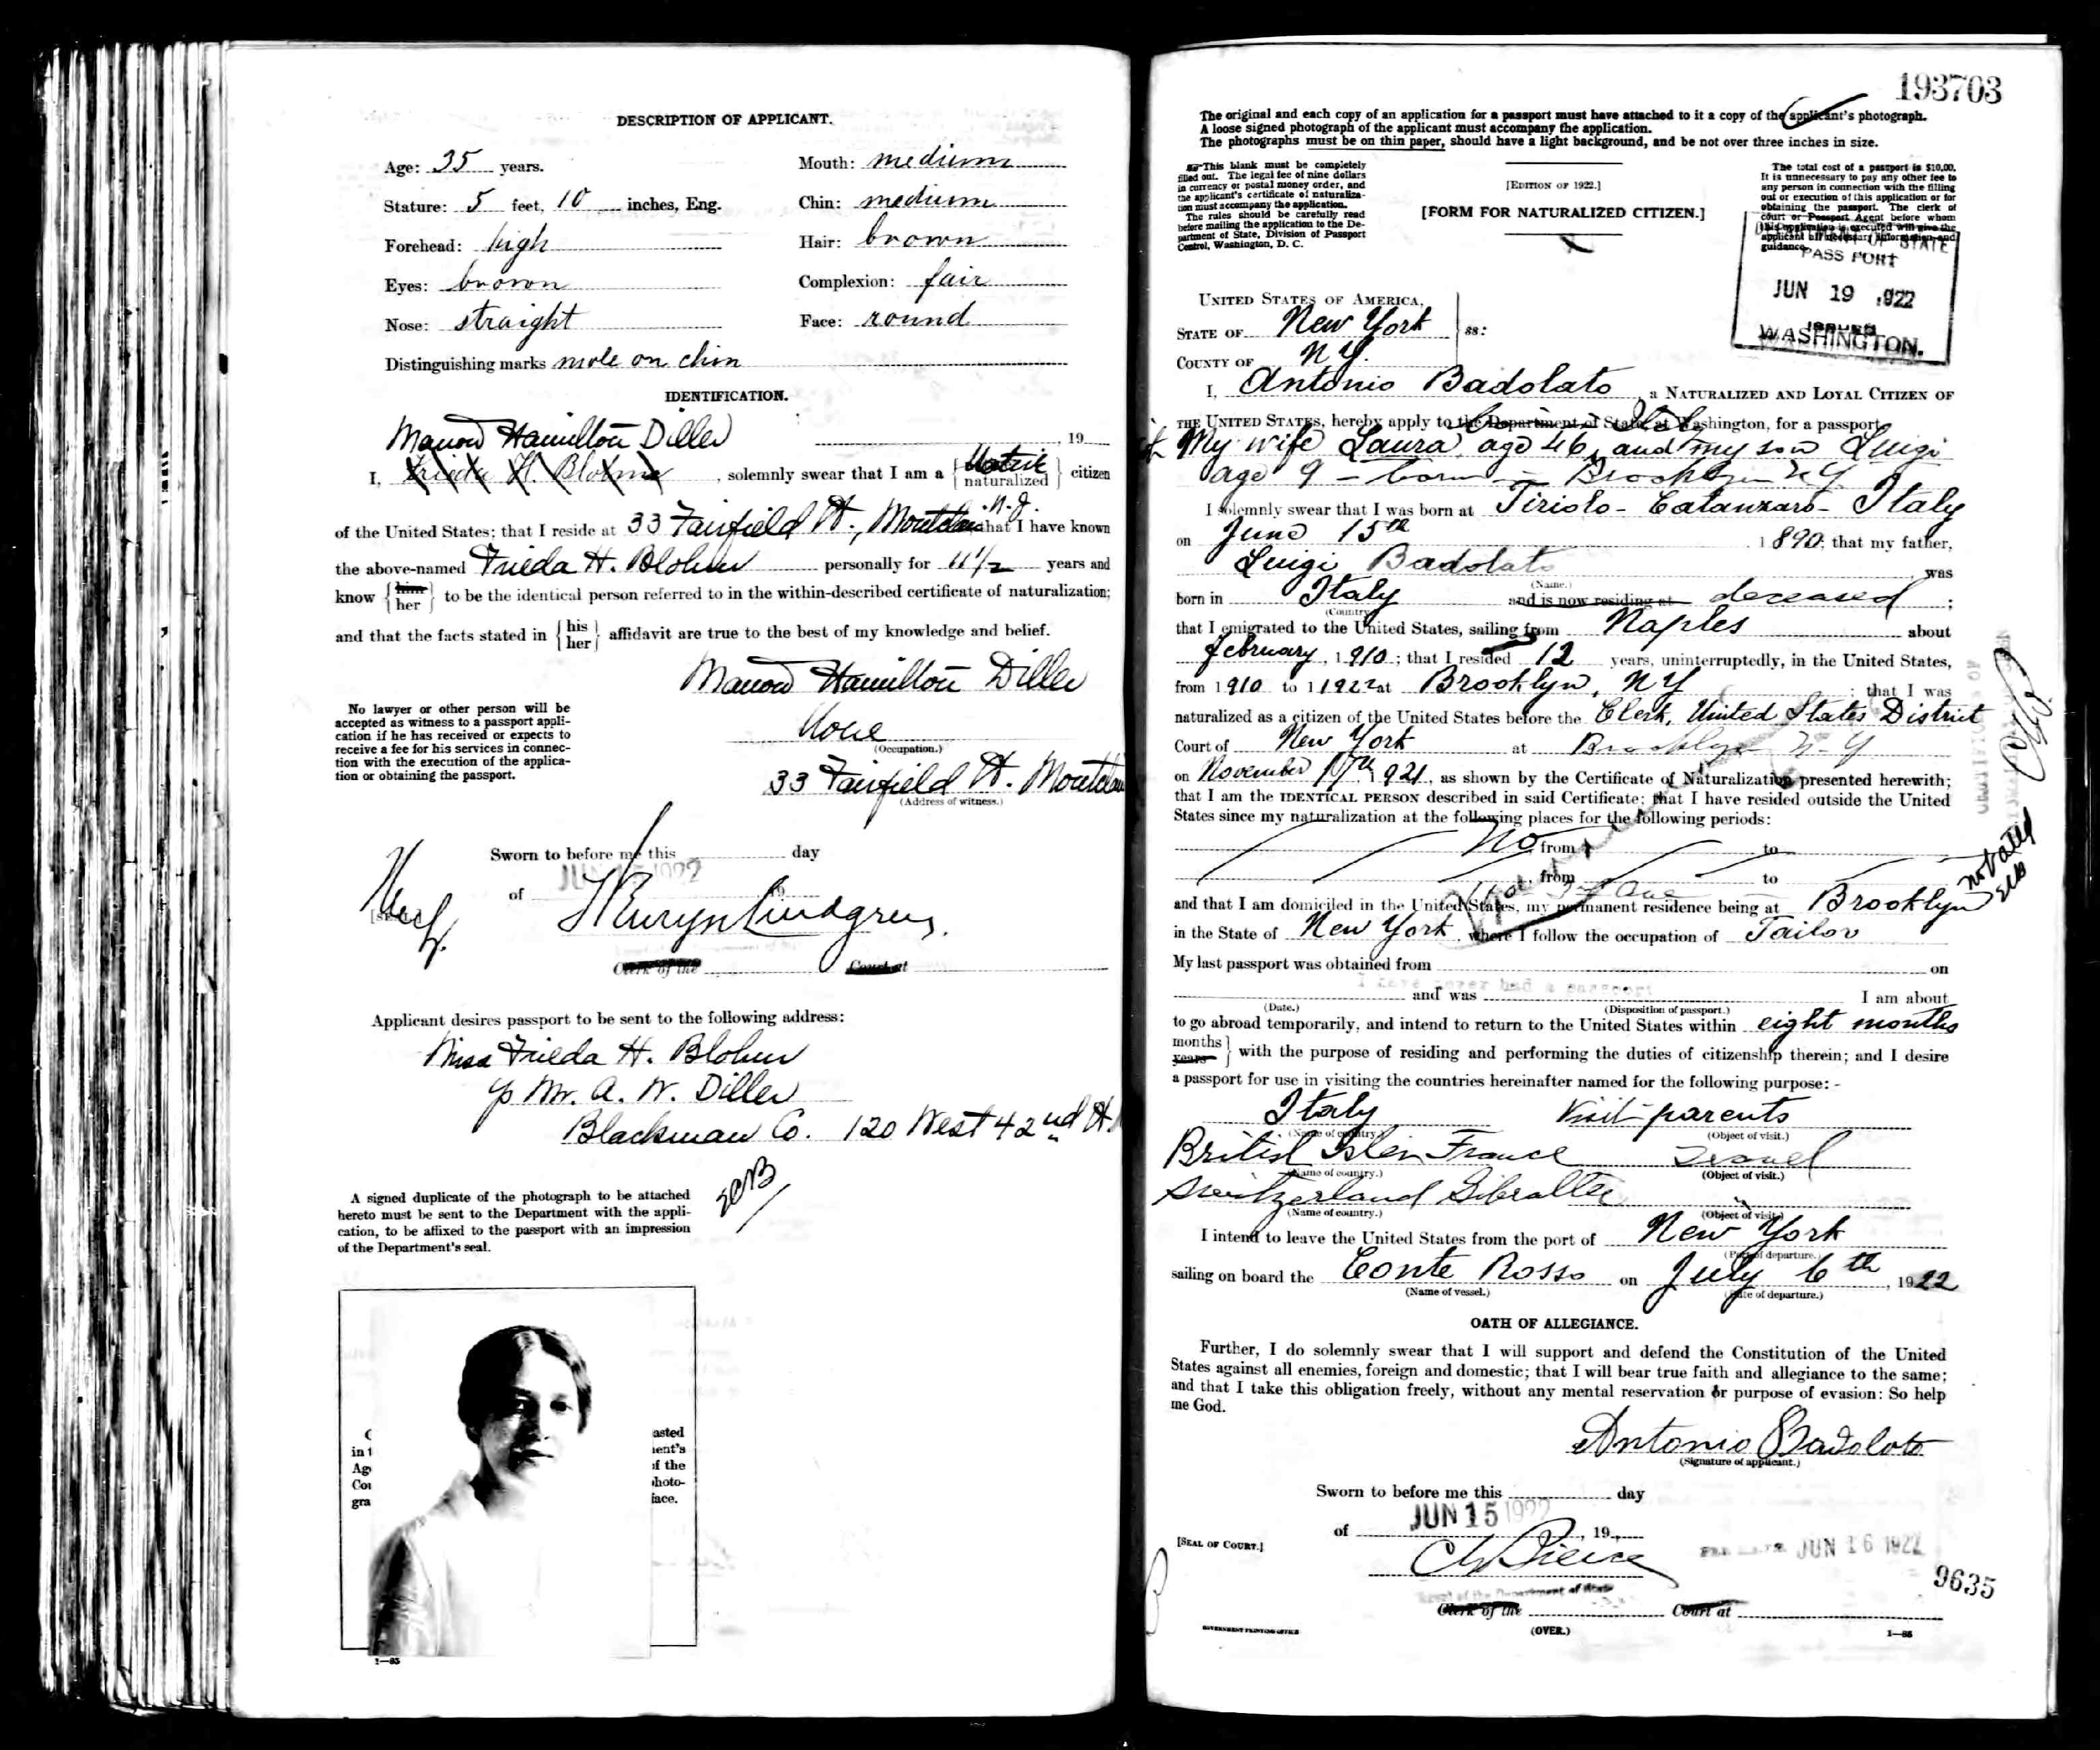 DESCRIPTION OF APPLICANT.
Age: 35 years.
Mouth: medium
Stature: 5 feet, 10 inches, Eng.
Chin: medium
Forehead: high
Hair: brown
Eyes: brown
Complexion: fair
Nose: straight
Face: round
Distinguishing marks mole on chin
IDENTIFICATION.
Hamilton Diller
, 19
I, Frieda H. Blohme, solemnly swear that I am a { native naturalized } citizen
of the United States; that I reside at 33 Fairfield St., Montclair N.J. that I have known
the above-named Frieda H. Blohm personally for 11 1/2 years and
know { him her } to be the identical person referred to in the within-described certificate of naturalization;
and that the facts stated in { his her } affidavit are true to the best of my knowledge and belief.
Hamilton Diller
None
(Occupation.)
33 Fairfield St. Montclair
(Address of witness.)
No lawyer or other person will be
accepted as witness to a passport appli-
cation if he has received or expects to
receive a fee for his services in connec-
tion with the execution of the applica-
tion or obtaining the passport.
Sworn to before me this day
of JUN 15 1922 19
Clerk of the Court at
Applicant desires passport to be sent to the following address:
Miss Frieda H. Blohm
c/o Mr. A. W. Diller
Blackman Co. 120 West 42nd St.
A signed duplicate of the photograph to be attached
hereto must be sent to the Department with the appli-
cation, to be affixed to the passport with an impression
of the Department's seal.
asted
in t ient's
Ag if the
Cou hoto-
gra iace.
1—85
193703
The original and each copy of an application for a passport must have attached to it a copy of the applicant's photograph.
A loose signed photograph of the applicant must accompany the application.
The photographs must be on thin paper, should have a light background, and be not over three inches in size.
This blank must be completely
filled out. The legal fee of nine dollars
in currency or postal money order, and
the applicant's certificate of naturaliza-
tion must accompany the application.
The rules should be carefully read
before mailing the application to the De-
partment of State, Division of Passport
Control, Washington, D. C.
[EDITION OF 1922.]
[FORM FOR NATURALIZED CITIZEN.]
The total cost of a passport is $10.00.
It is unnecessary to pay any other fee to
any person in connection with the filling
out or execution of this application or for
obtaining the passport. The clerk of
court or Passport Agent before whom
this application is executed will give the
applicant all necessary information and
guidance.
STATE
PASSPORT
JUN 19 1922
ISSUED
WASHINGTON.
UNITED STATES OF AMERICA,
STATE OF New York
ss:
COUNTY OF N Y.
I, Antonio Badolato, a NATURALIZED AND LOYAL CITIZEN OF
THE UNITED STATES, hereby apply to the Department of State at Washington, for a passport
My wife Laura age 46, and my son Luigi
age 9 - born in Brooklyn N Y
I solemnly swear that I was born at Tiriolo - Catanzaro - Italy
on June 15th 1890; that my father,
Luigi Badolato was
(Name.)
born in Italy and is now residing at deceased ;
(Country)
that I emigrated to the United States, sailing from Naples about
February, 1910; that I resided 12 years, uninterruptedly, in the United States,
from 1910 to 1922 at Brooklyn, NY ; that I was
naturalized as a citizen of the United States before the Clerk, United States District
Court of New York at Brooklyn N-Y
on November 17th 1921, as shown by the Certificate of Naturalization presented herewith;
that I am the IDENTICAL PERSON described in said Certificate; that I have resided outside the United
States since my naturalization at the following places for the following periods:
No from to
, from to
Ave
and that I am domiciled in the United States, my permanent residence being at Brooklyn
in the State of New York, where I follow the occupation of Tailor
My last passport was obtained from on
I have never had a passport
and was I am about
(Date.) (Disposition of passport.)
to go abroad temporarily, and intend to return to the United States within eight months
months years } with the purpose of residing and performing the duties of citizenship therein; and I desire
a passport for use in visiting the countries hereinafter named for the following purpose: -
Italy visit parents
(Name of country.) (Object of visit.)
British Isles France Travel
(Name of country.) (Object of visit.)
Switzerland Gibralter
(Name of country.) (Object of visit.)
I intend to leave the United States from the port of New York
(Port of departure.)
sailing on board the Conte Rosso on July 6th, 1922
(Name of vessel.) (Date of departure.)
OATH OF ALLEGIANCE.
Further, I do solemnly swear that I will support and defend the Constitution of the United
States against all enemies, foreign and domestic; that I will bear true faith and allegiance to the same;
and that I take this obligation freely, without any mental reservation or purpose of evasion: So help
me God.
Antonio Badolato
(Signature of applicant.)
Sworn to before me this day
of JUN 15 1922, 19
[SEAL OF COURT.]
JUN 16 1922
9635
of the Department of State
Clerk of the Court at
GOVERNMENT PRINTING OFFICE
(OVER.)
1—85